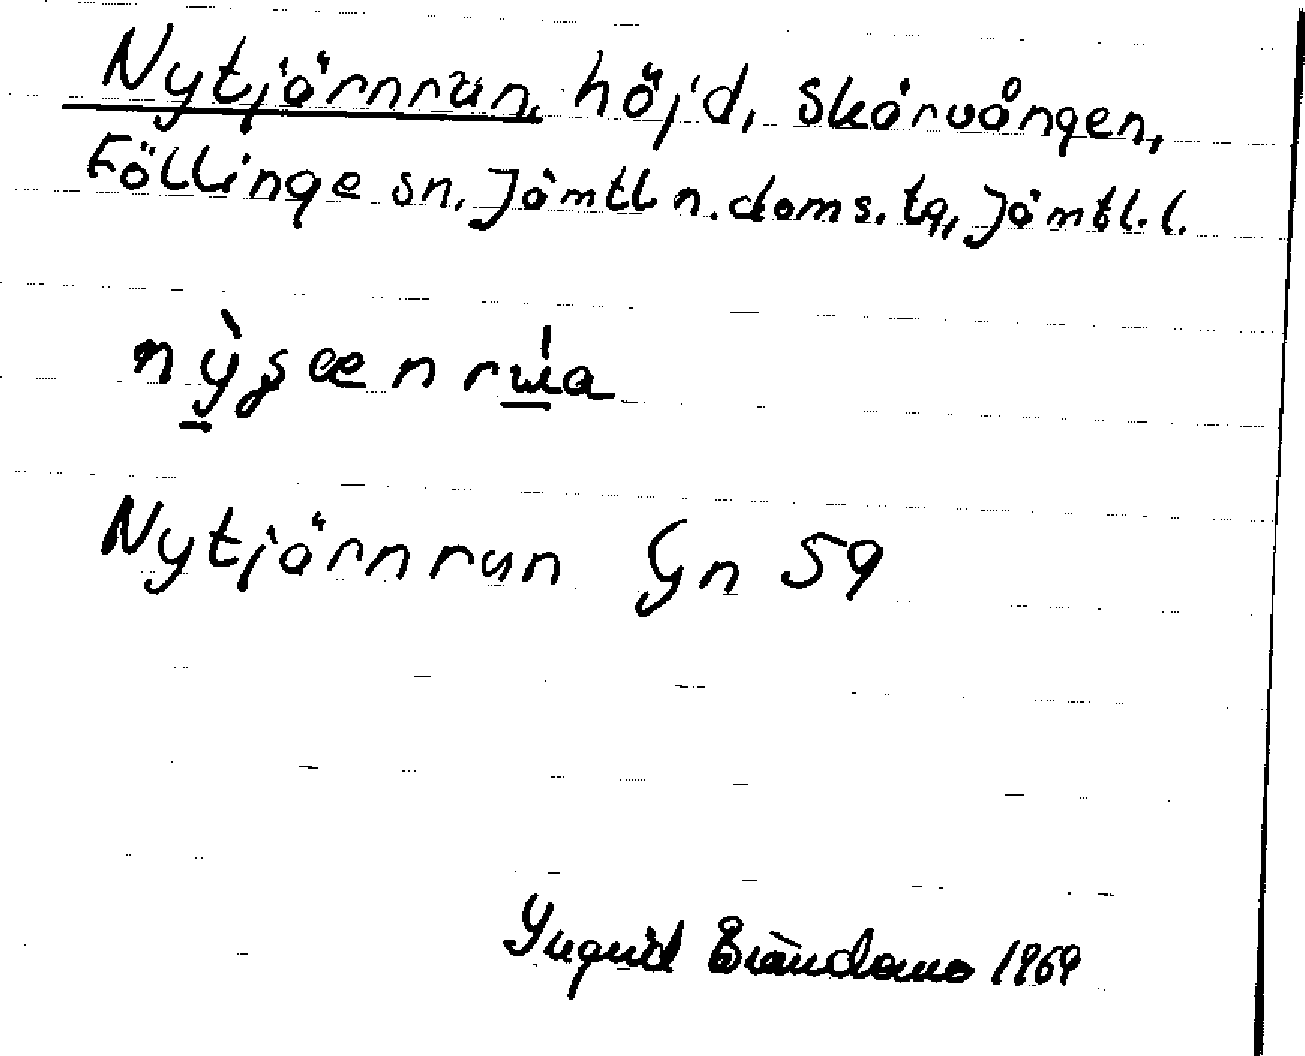 Nytjärnrun, höjd, Skärvången,
Föllinge sn, Jämtl n. doms. tg, Jämtl. l.
Nytjärnrun Gn 59
Ingrid Brändamo 1969